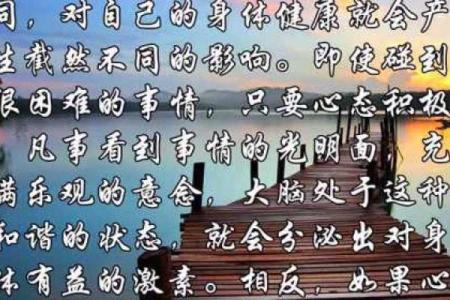 同，对自己的身体健康就会产
生截然不同的影响。即使碰到
很困难的事情，只要心态积极
，凡事看到事情的光明面，充
满乐观的意念，大脑处于这种
和谐的状态，就会分泌出对身
体有益的激素。相反，如果心